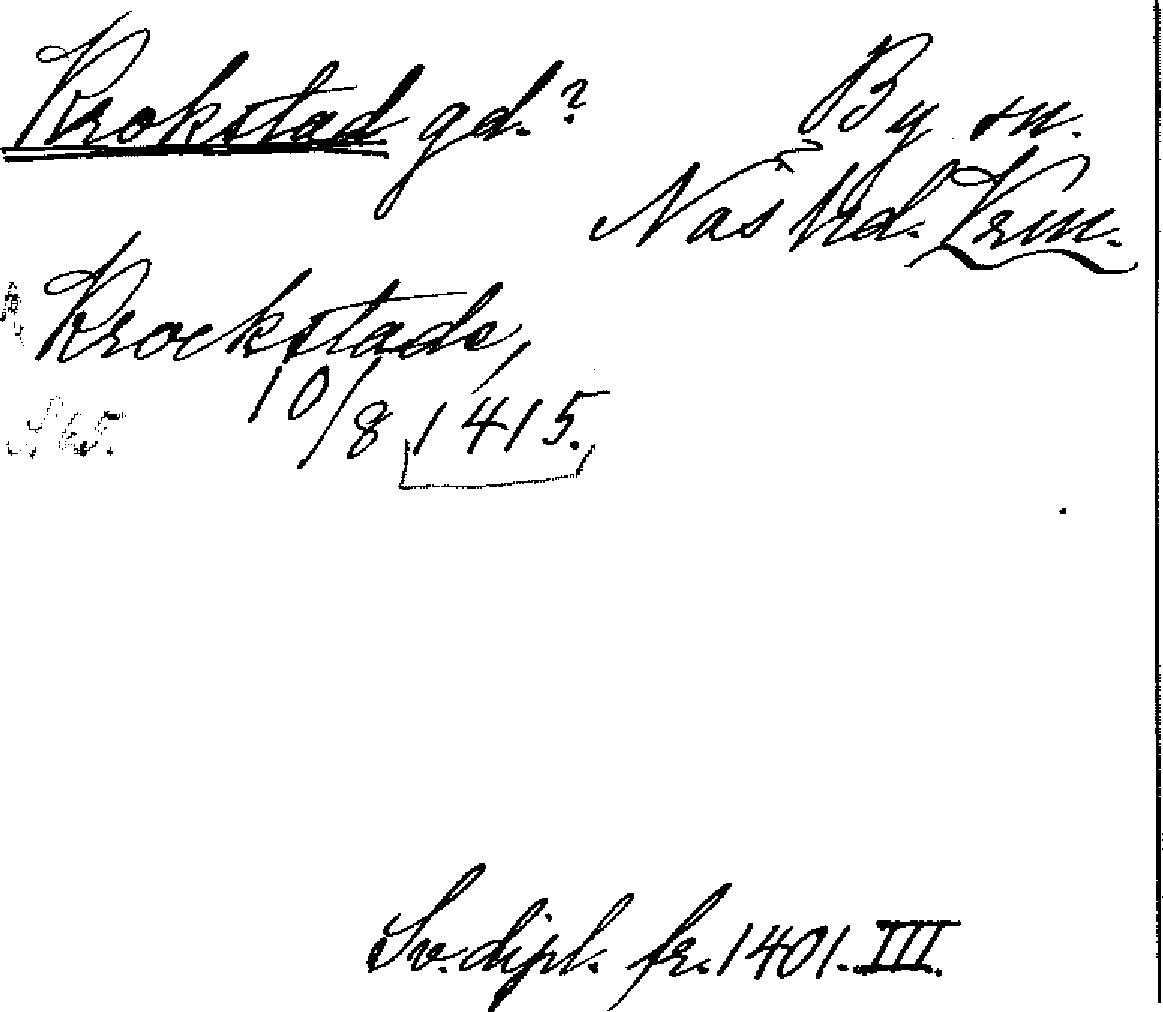 Krokstad gd.?
By sn.
Näs hd. Vrm.
Krockstade,
10/8 1415.
Sv. dipl. fr. 1401. III.